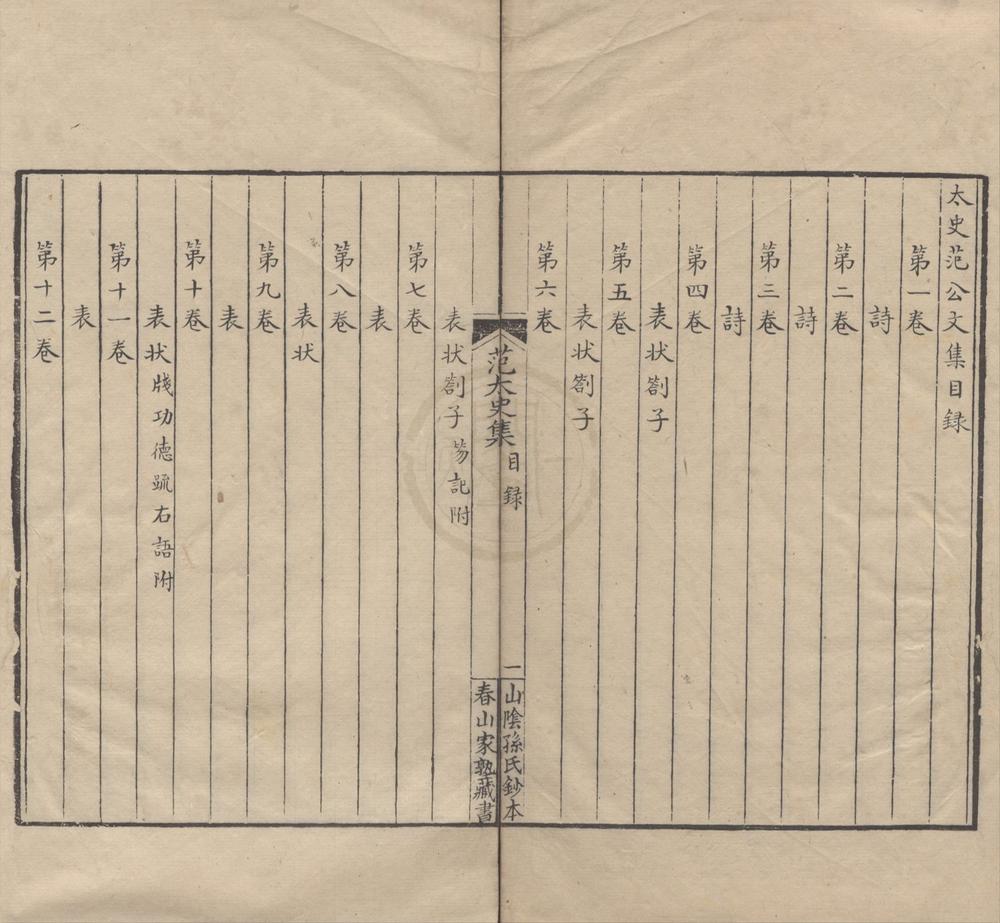 太史范公文集目録
第一卷
詩
第二卷
詩
第三卷
詩
第四卷
表状劄子
第五卷
表状劄子
第六卷
范太史集
目録
一
山陰孫氏鈔本
春山家塾藏書
表状劄子笏記附
第七卷
表
第八卷
表状
第九卷
表
第十卷
表状牋功德疏右語附
第十一卷
表
第十二卷